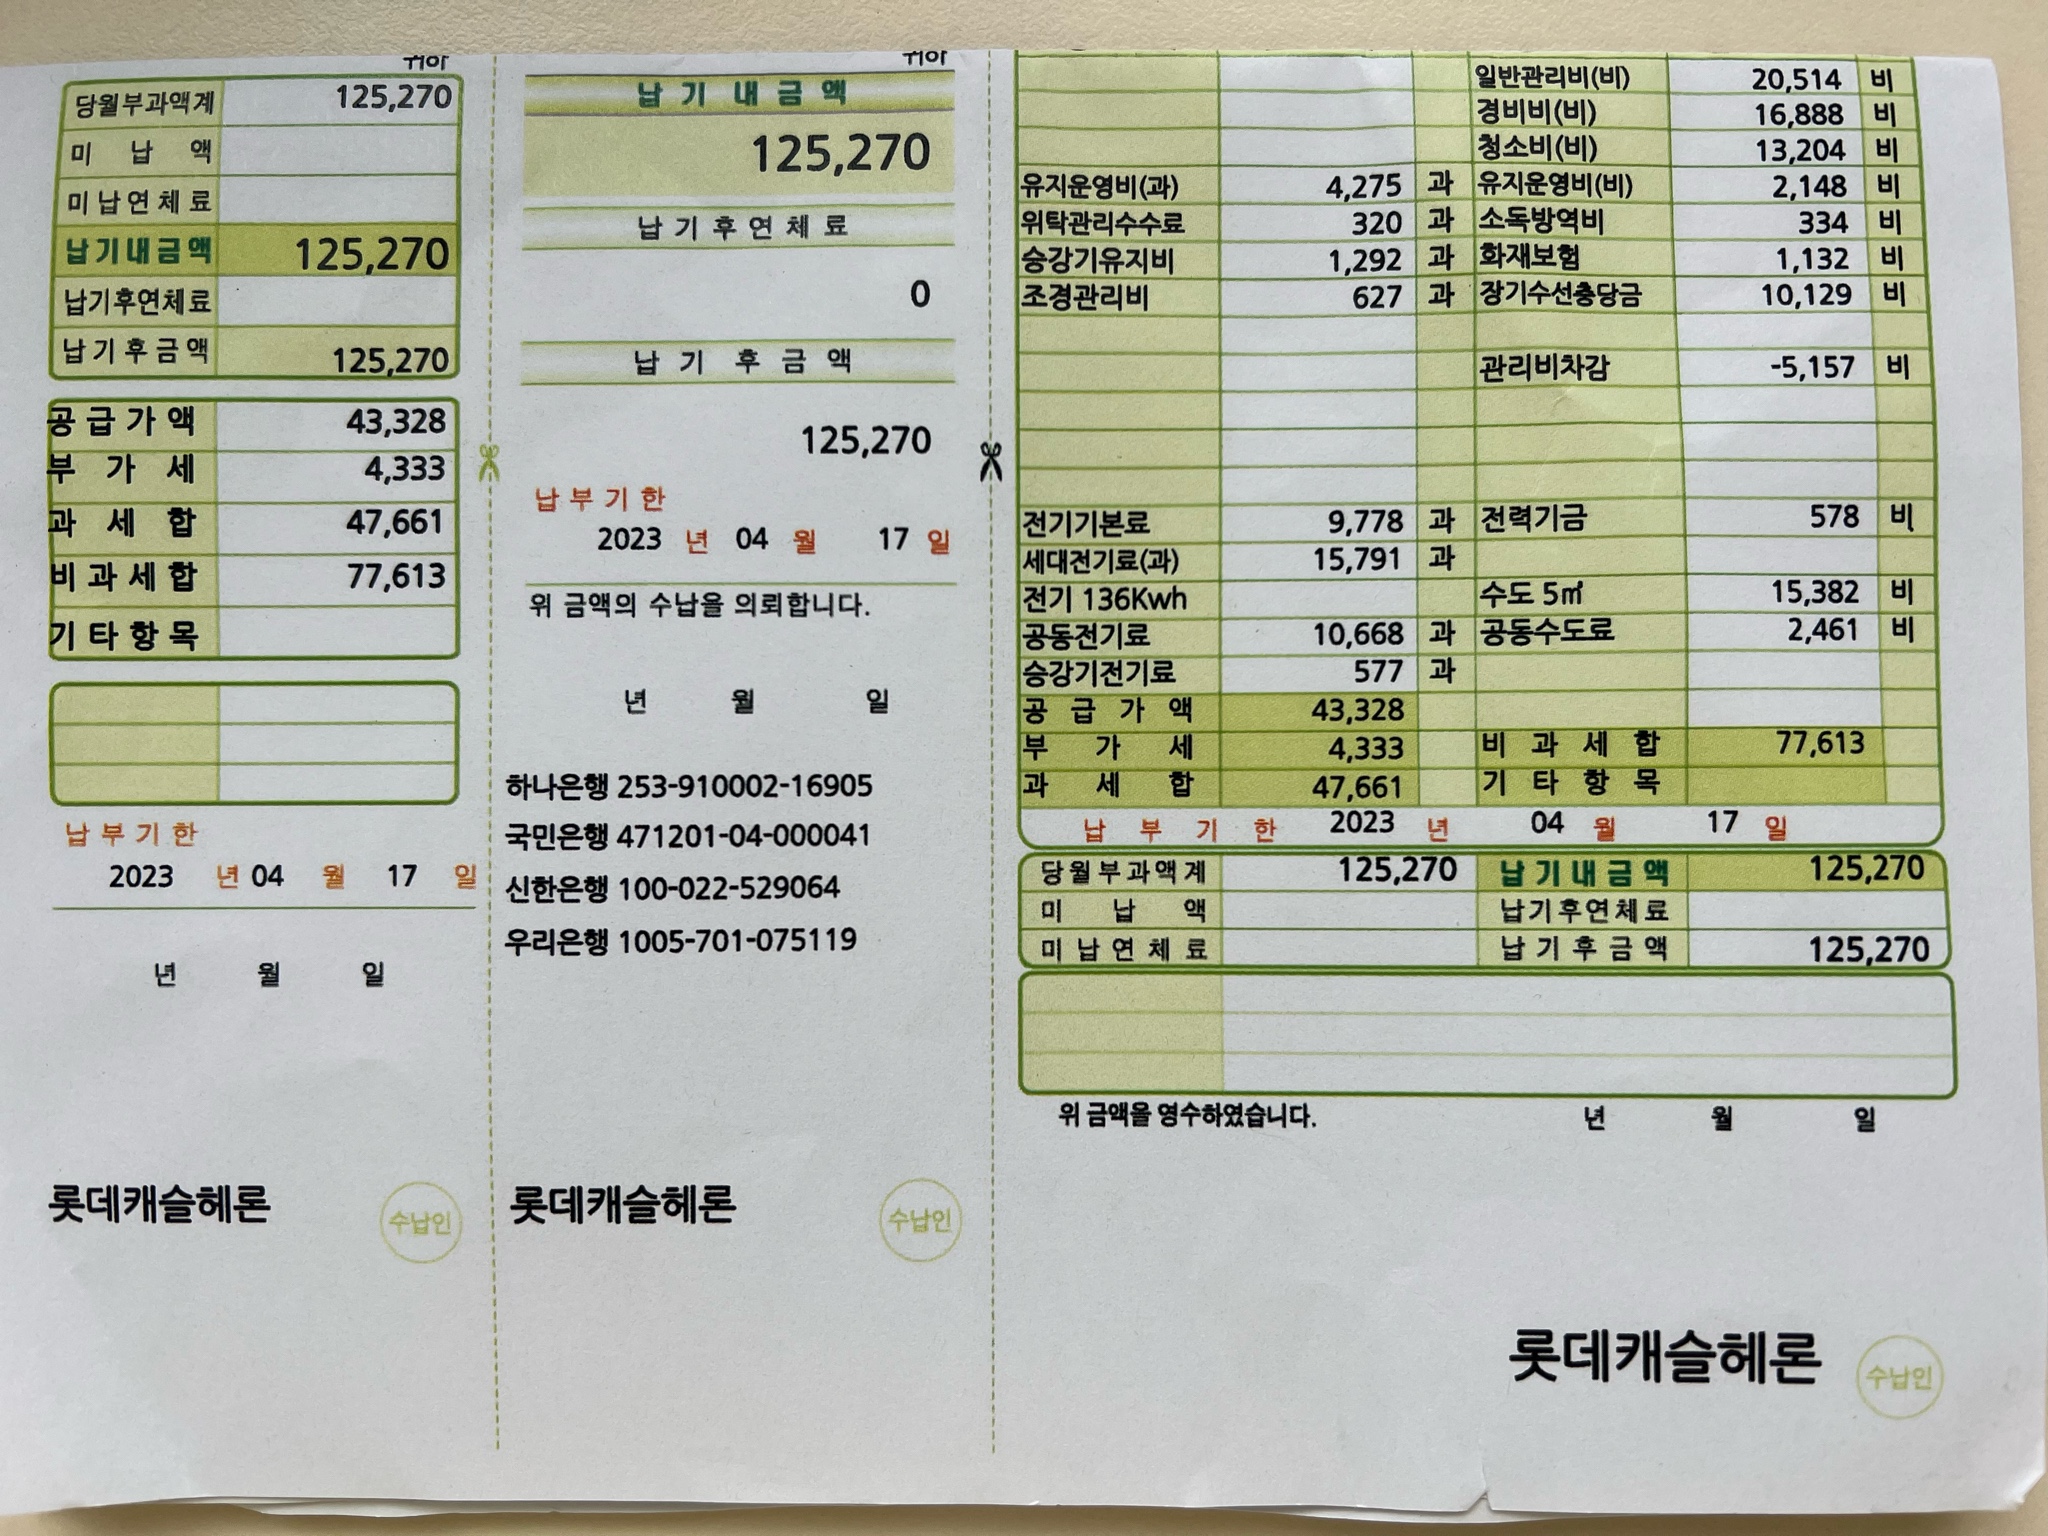 귀하
당월부과액계 125,270
미 납 액
미납연체료
납기내금액 125,270
납기후연체료
납기후금액 125,270
공급가액 43,328
부 가 세 4,333
과 세 합 47,661
비과세합 77,613
기타항목
납부기한
2023 년 04 월 17 일
년 월 일
롯데캐슬헤론
수납인
귀하
납 기 내 금 액
125,270
납 기 후 연 체 료
0
납 기 후 금 액
125,270
납부기한
2023 년 04 월 17 일
위 금액의 수납을 의뢰합니다.
년 월 일
하나은행 253-910002-16905
국민은행 471201-04-000041
신한은행 100-022-529064
우리은행 1005-701-075119
롯데캐슬헤론
수납인
일반관리비(비) 20,514 비
경비비(비) 16,888 비
청소비(비) 13,204 비
유지운영비(과) 4,275 과 유지운영비(비) 2,148 비
위탁관리수수료 320 과 소독방역비 334 비
승강기유지비 1,292 과 화재보험 1,132 비
조경관리비 627 과 장기수선충당금 10,129 비
관리비차감 -5,157 비
전기기본료 9,778 과 전력기금 578 비
세대전기료(과) 15,791 과
전기 136Kwh 수도 5㎥ 15,382 비
공동전기료 10,668 과 공동수도료 2,461 비
승강기전기료 577 과
공 급 가 액 43,328
부 가 세 4,333 비 과 세 합 77,613
과 세 합 47,661 기 타 항 목
납 부 기 한 2023 년 04 월 17 일
당월부과액계 125,270 납기내금액 125,270
미 납 액 납기후연체료
미납연체료 납기후금액 125,270
위 금액을 영수하였습니다. 년 월 일
롯데캐슬헤론
수납인